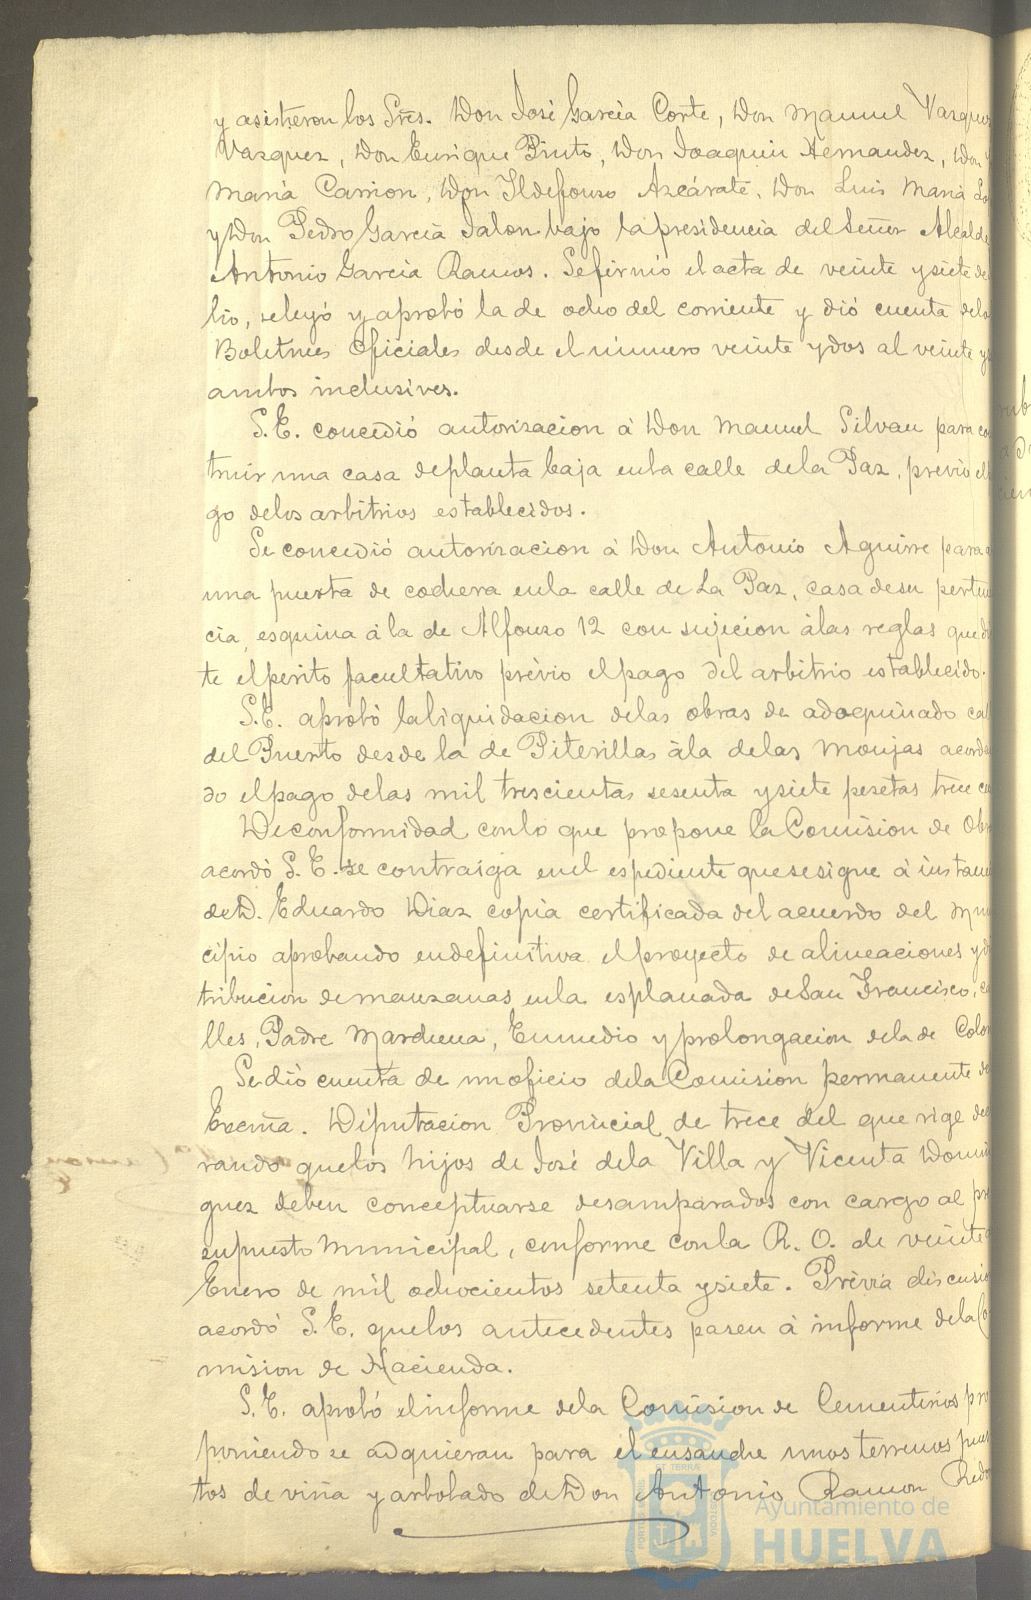 y asistieron los Sres. Don José Garcia Corte, Don Manuel Vazquez
Vazquez, Don Enrique Pinto, Don Joaquin Hernandez, Don
Maria Carrion, Don Ildefonso Azcárate, Don Luis Maria
y Don Pedro Garcia Jalon bajo la presidencia del Señor Alcalde
Antonio Garcia Ramos. Se firmó el acta de veinte y siete de
lio, se leyó y aprobó la de ocho del corriente y dió cuenta de los
Boletines Oficiales desde el número veinte y dos al veinte y
ambos inclusives.
S.E. concedió autorizacion á Don Manuel Silvan para cons
truir una casa de planta baja en la calle de la Paz, previo el
go de los arbitrios establecidos.
Se concedió autorizacion á Don Antonio Aguirre para
una puerta de cochera en la calle de La Paz, casa de su perten
cia, esquina á la de Alfonso 12 con sujecion á las reglas que
te el perito facultativo prévio el pago del arbitrio establecido.
S.E. aprobó la liquidacion de las obras de adoquinado
del Puerto desde la de Piterilla á la de las Monjas acorda
do el pago de las mil trescientas sesenta y siete pesetas trece
De conformidad con lo que propone la Comision de Obras
acordó S.E. se contraiga en el espediente que se sigue á instan
de D. Eduardo Diaz copia certificada del acuerdo del Muni
cipio aprobando en definitiva el proyecto de alineaciones y
tribucion de manzanas en la esplanada de San Francisco, ca
lles, Padre Marchena, Enmedio y prolongacion de la de Colon
Se dió cuenta de un oficio de la Comision permanente de
Excma. Diputacion Provincial de trece del que rige
rando que los hijos de José de la Villa y Vicenta Domin
guez deben conceptuarse desamparados con cargo al pre
supuesto Municipal, conforme con la R. O. de veinte
Enero de mil ochocientos setenta y siete. Prévia discusion
acordó S.E. que los antecedentes pasen á informe de la Co
mision de Hacienda.
S.E. aprobó el informe de la Comision de Cementerios pro
poniendo se adquieran para el ensanche unos terrenos
tos de viña y arbolado de Don Antonio Ramon
Ayuntamiento de
HUELVA